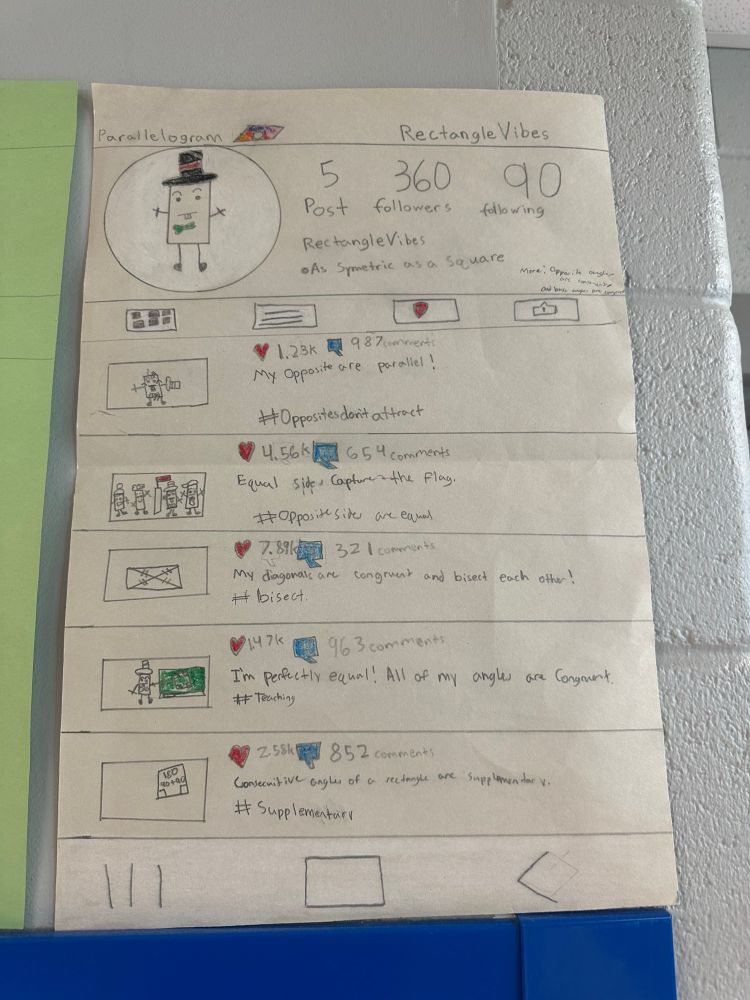 Parallelogram RectangleVibes
5 360 90
Post followers following
RectangleVibes
•As Symetric as a Square
More: Opposite angles
are congruent
1.23k 987 comments
My Opposite are parallel!
#Oppositesdon't attract
4.56k 654 comments
Equal sides Capture the Flag.
#Opposite sides are equal
7.89k 321 comments
My diagonals are congruent and bisect each other!
# bisect.
1.47k 963 comments
I'm perfectly equal! All of my angles are Congruent.
# Teaching
2.58k 852 comments
180
90+90
Consecuitive angles of a rectangle are supplementary.
# Supplementary